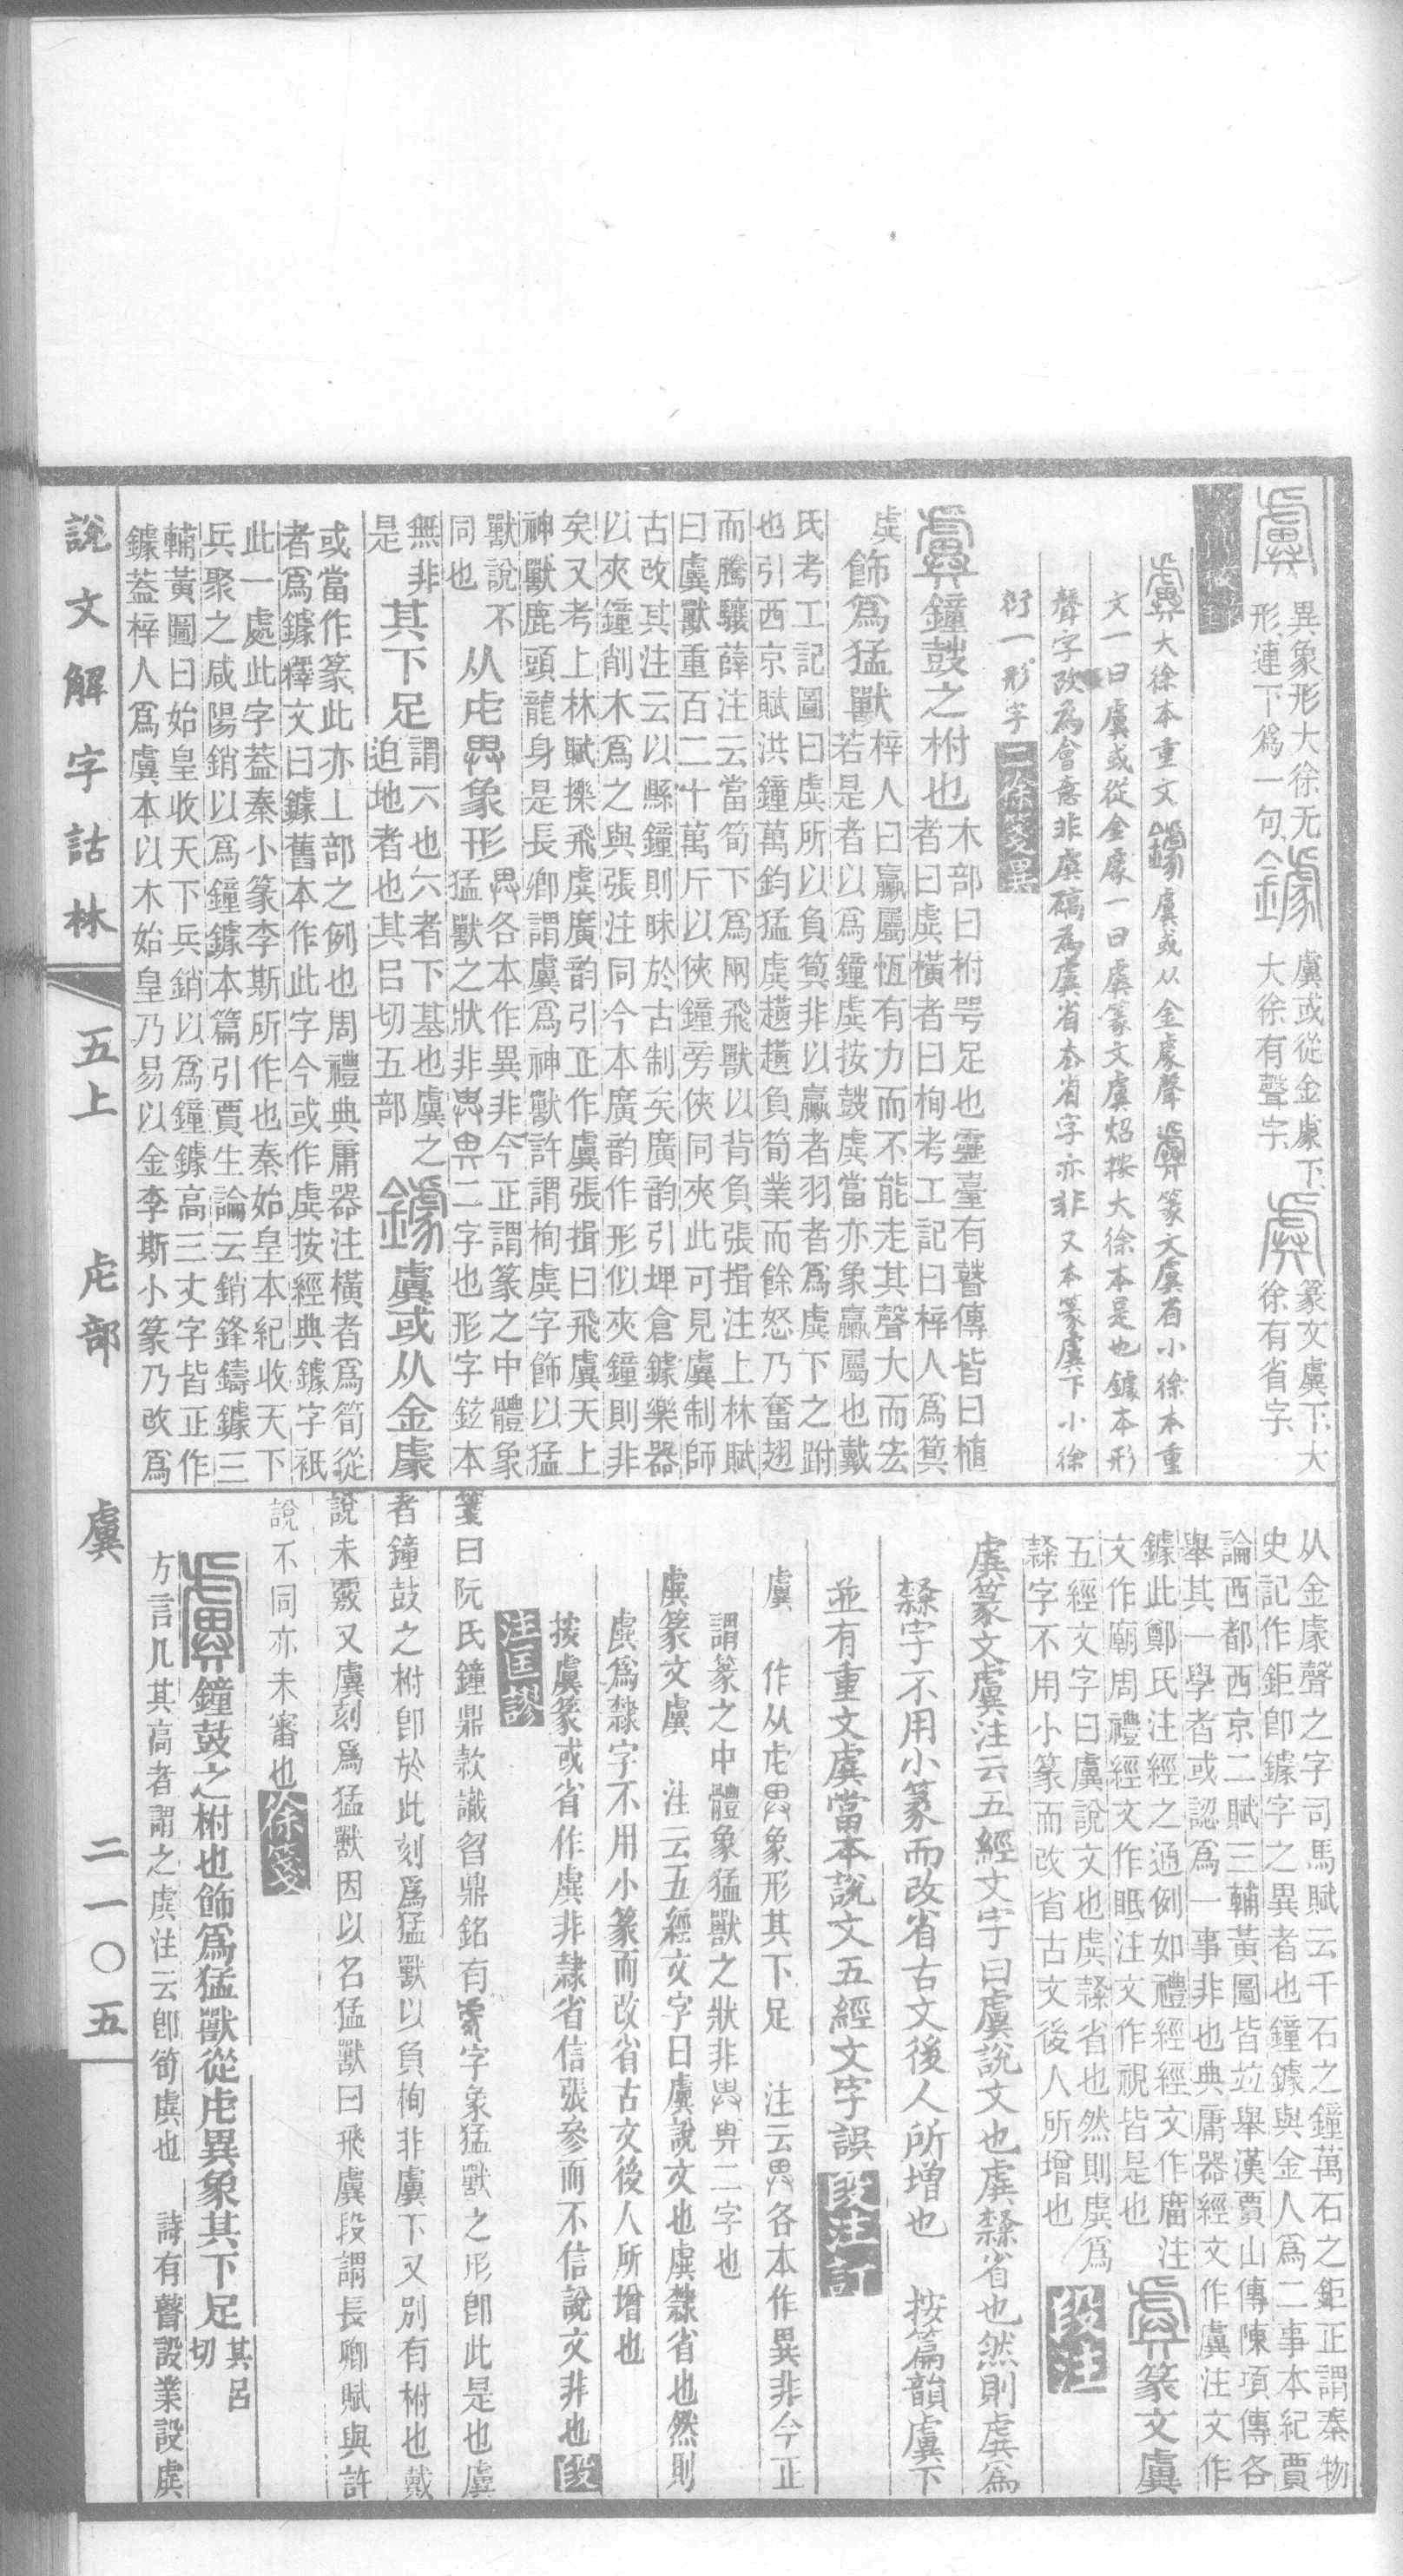 異象形大徐无
形連下爲一句
虡或從金豦下
大徐有聲字
篆文虡下大
徐有省字
大徐本重文 虡或从金豦聲 篆文虡省小徐本重
文一曰虡或從金豦一曰虡篆文虡炤按大徐本是也鐻本形
聲字改爲會意非虡槅爲虡省本省字亦非又本篆虡下小徐
衍一形字 二徐箋異
虡 鐘鼓之柎也
木部曰柎咢足也靈臺有瞽傳皆曰植
者曰虡橫者曰栒考工記曰梓人爲筍
虡
飾爲猛獸
梓人曰臝屬恆有力而不能走其聲大而宏
若是者以爲鐘虡按鼓虡當亦象臝屬也戴
氏考工記圖曰虡所以負筍非以臝者羽者爲虡下之跗
也引西京賦洪鐘萬鈞猛虡趪趪負筍業而餘怒乃奮翅
而騰驤薛注云當筍下爲兩飛獸以背負張揖注上林賦
曰虡獸重百二十萬斤以俠鐘旁俠同夾此可見虡制師
古改其注云以縣鐘則昧於古制矣廣韵引埤倉鐻樂器
以夾鐘削木爲之與張注同今本廣韵作形似夾鐘則非
矣又考上林賦擽飛虡廣韵引正作虡張揖曰飛虡天上
神獸鹿頭龍身是長卿謂虡爲神獸許謂栒虡字飾以猛
獸說不
同也
从虍𢌿象形
𢌿各本作異非今正謂篆之中體象
猛獸之狀非𢌿畀二字也形字鉉本
無非
是
其下足
謂六也六者下基也虡之
迫地者也其呂切五部
虡或从金豦
或當作篆此亦丄部之例也周禮典庸器注橫者爲筍從
者爲鐻釋文曰鐻舊本作此字今或作虡按經典鐻字祇
此一處此字蓋秦小篆李斯所作也秦始皇本紀收天下
兵聚之咸陽銷以爲鐘鐻本篇引賈生論云銷鋒鑄鐻三
輔黃圖曰始皇收天下兵銷以爲鐘鐻高三丈字皆正作
鐻蓋梓人爲虡本以木始皇乃易以金李斯小篆乃改爲
从金豦聲之字司馬賦云千石之鐘萬石之鉅正謂秦物
史記作鉅卽鐻字之異者也鐘鐻與金人爲二事本紀賈
論西都西京二賦三輔黃圖皆竝舉漢賈山傳陳項傳各
舉其一學者或認爲一事非也典庸器經文作虡注文作
鐻此鄭氏注經之通例如禮經經文作庿注
文作廟周禮經文作眡注文作視皆是也
篆文虡
五經文字曰虡說文也虡𣜩省也然則虡爲
𣜩字不用小篆而改省古文後人所增也
段注
虡篆文虡注云五經文字曰虡說文也虡𣜩省也然則虡爲
𣜩字不用小篆而改省古文後人所增也 按篇韻虡下
並有重文虡當本說文五經文字誤 段注訂
虡 作从虍𢌿象形其下足 注云𢌿各本作異非今正
謂篆之中體象猛獸之狀非𢌿畀二字也
虡篆文虡 注云五經文字曰虡說文也虡隸省也然則
虡爲隸字不用小篆而改省古文後人所增也
按虡篆或省作虡非隸省信張參而不信說文非也 段
注匡謬
箋曰阮氏鐘鼎款識曶鼎銘有 字象猛獸之形卽此是也虡
者鐘鼓之柎卽於此刻爲猛獸以負栒非虡下又別有柎也戴
說未覈又虡刻爲猛獸因以名猛獸曰飛虡段謂長卿賦與許
說不同亦未審也 徐箋
鐘鼓之柎也飾爲猛獸從虍異象其下足 其呂
切
方言几其高者謂之虡注云卽筍虡也 詩有瞽設業設虡
說文解字詁林 五上 虍部 虡 二一〇五